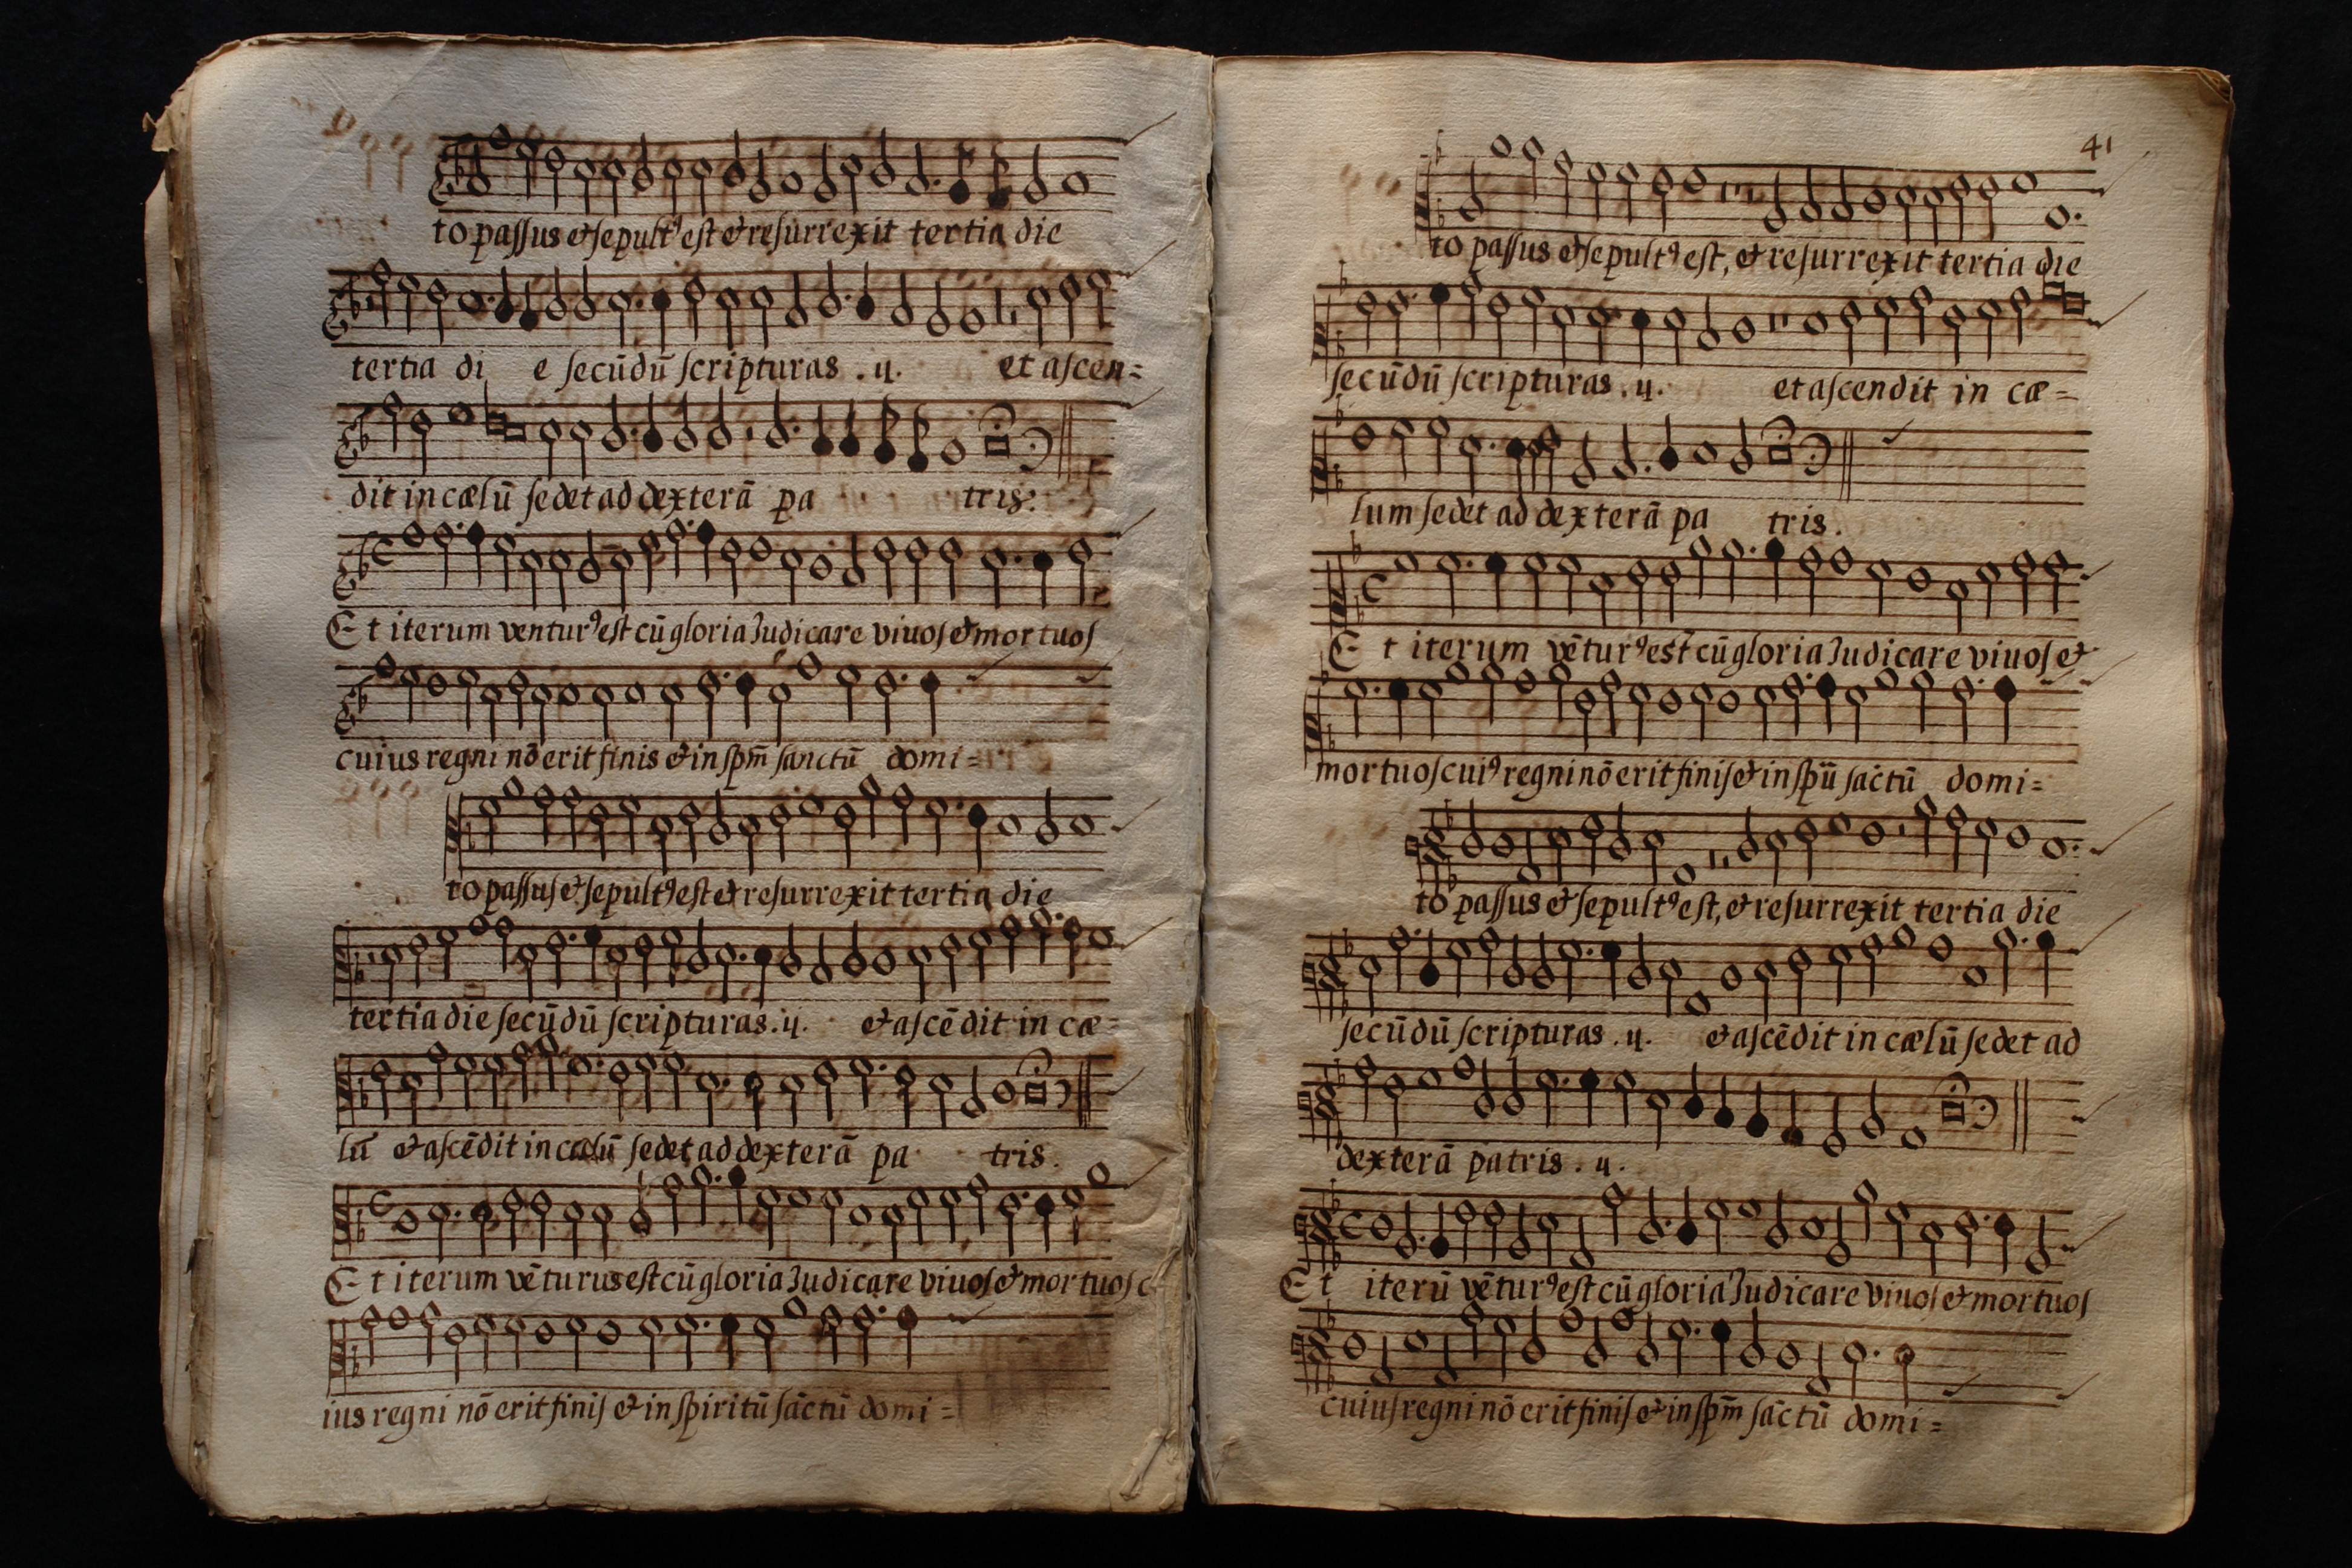 to passus et sepultꝰ est et resurrexit tertia die
tertia di e secūdū scripturas . ij. et ascen=
dit in cælū sedet ad dexterā pa tris.
Et iterum venturꝰ est cū gloria Iudicare viuos et mortuos
cuius regni nō erit finis et in spm̄ sanctū domi=
to passus et sepultꝰ est et resurrexit tertia die
tertia die secūdū scripturas. ij. et ascēdit in cæ=
lū et ascēdit in cælū sedet ad dexterā pa tris.
Et iterum vēturus est cū gloria Iudicare viuos et mortuos c
ius regni nō erit finis et in spiritū sāctū domi=
41
to passus et sepultꝰ est, et resurrexit tertia die
secūdū scripturas. ij. et ascendit in cæ=
lum sedet ad dexterā pa tris.
Et iterum vēturꝰ est cū gloria Iudicare viuos et
mortuos cuiꝰ regni nō erit finis et in spū sāctū domi=
to passus et sepultꝰ est, et resurrexit tertia die
secūdū scripturas . ij. et ascēdit in cælū sedet ad
dexterā patris . ij.
Et iterū vēturꝰ est cū gloria Iudicare viuos et mortuos
cuius regni nō erit finis et in spm̄ sāctū domi=